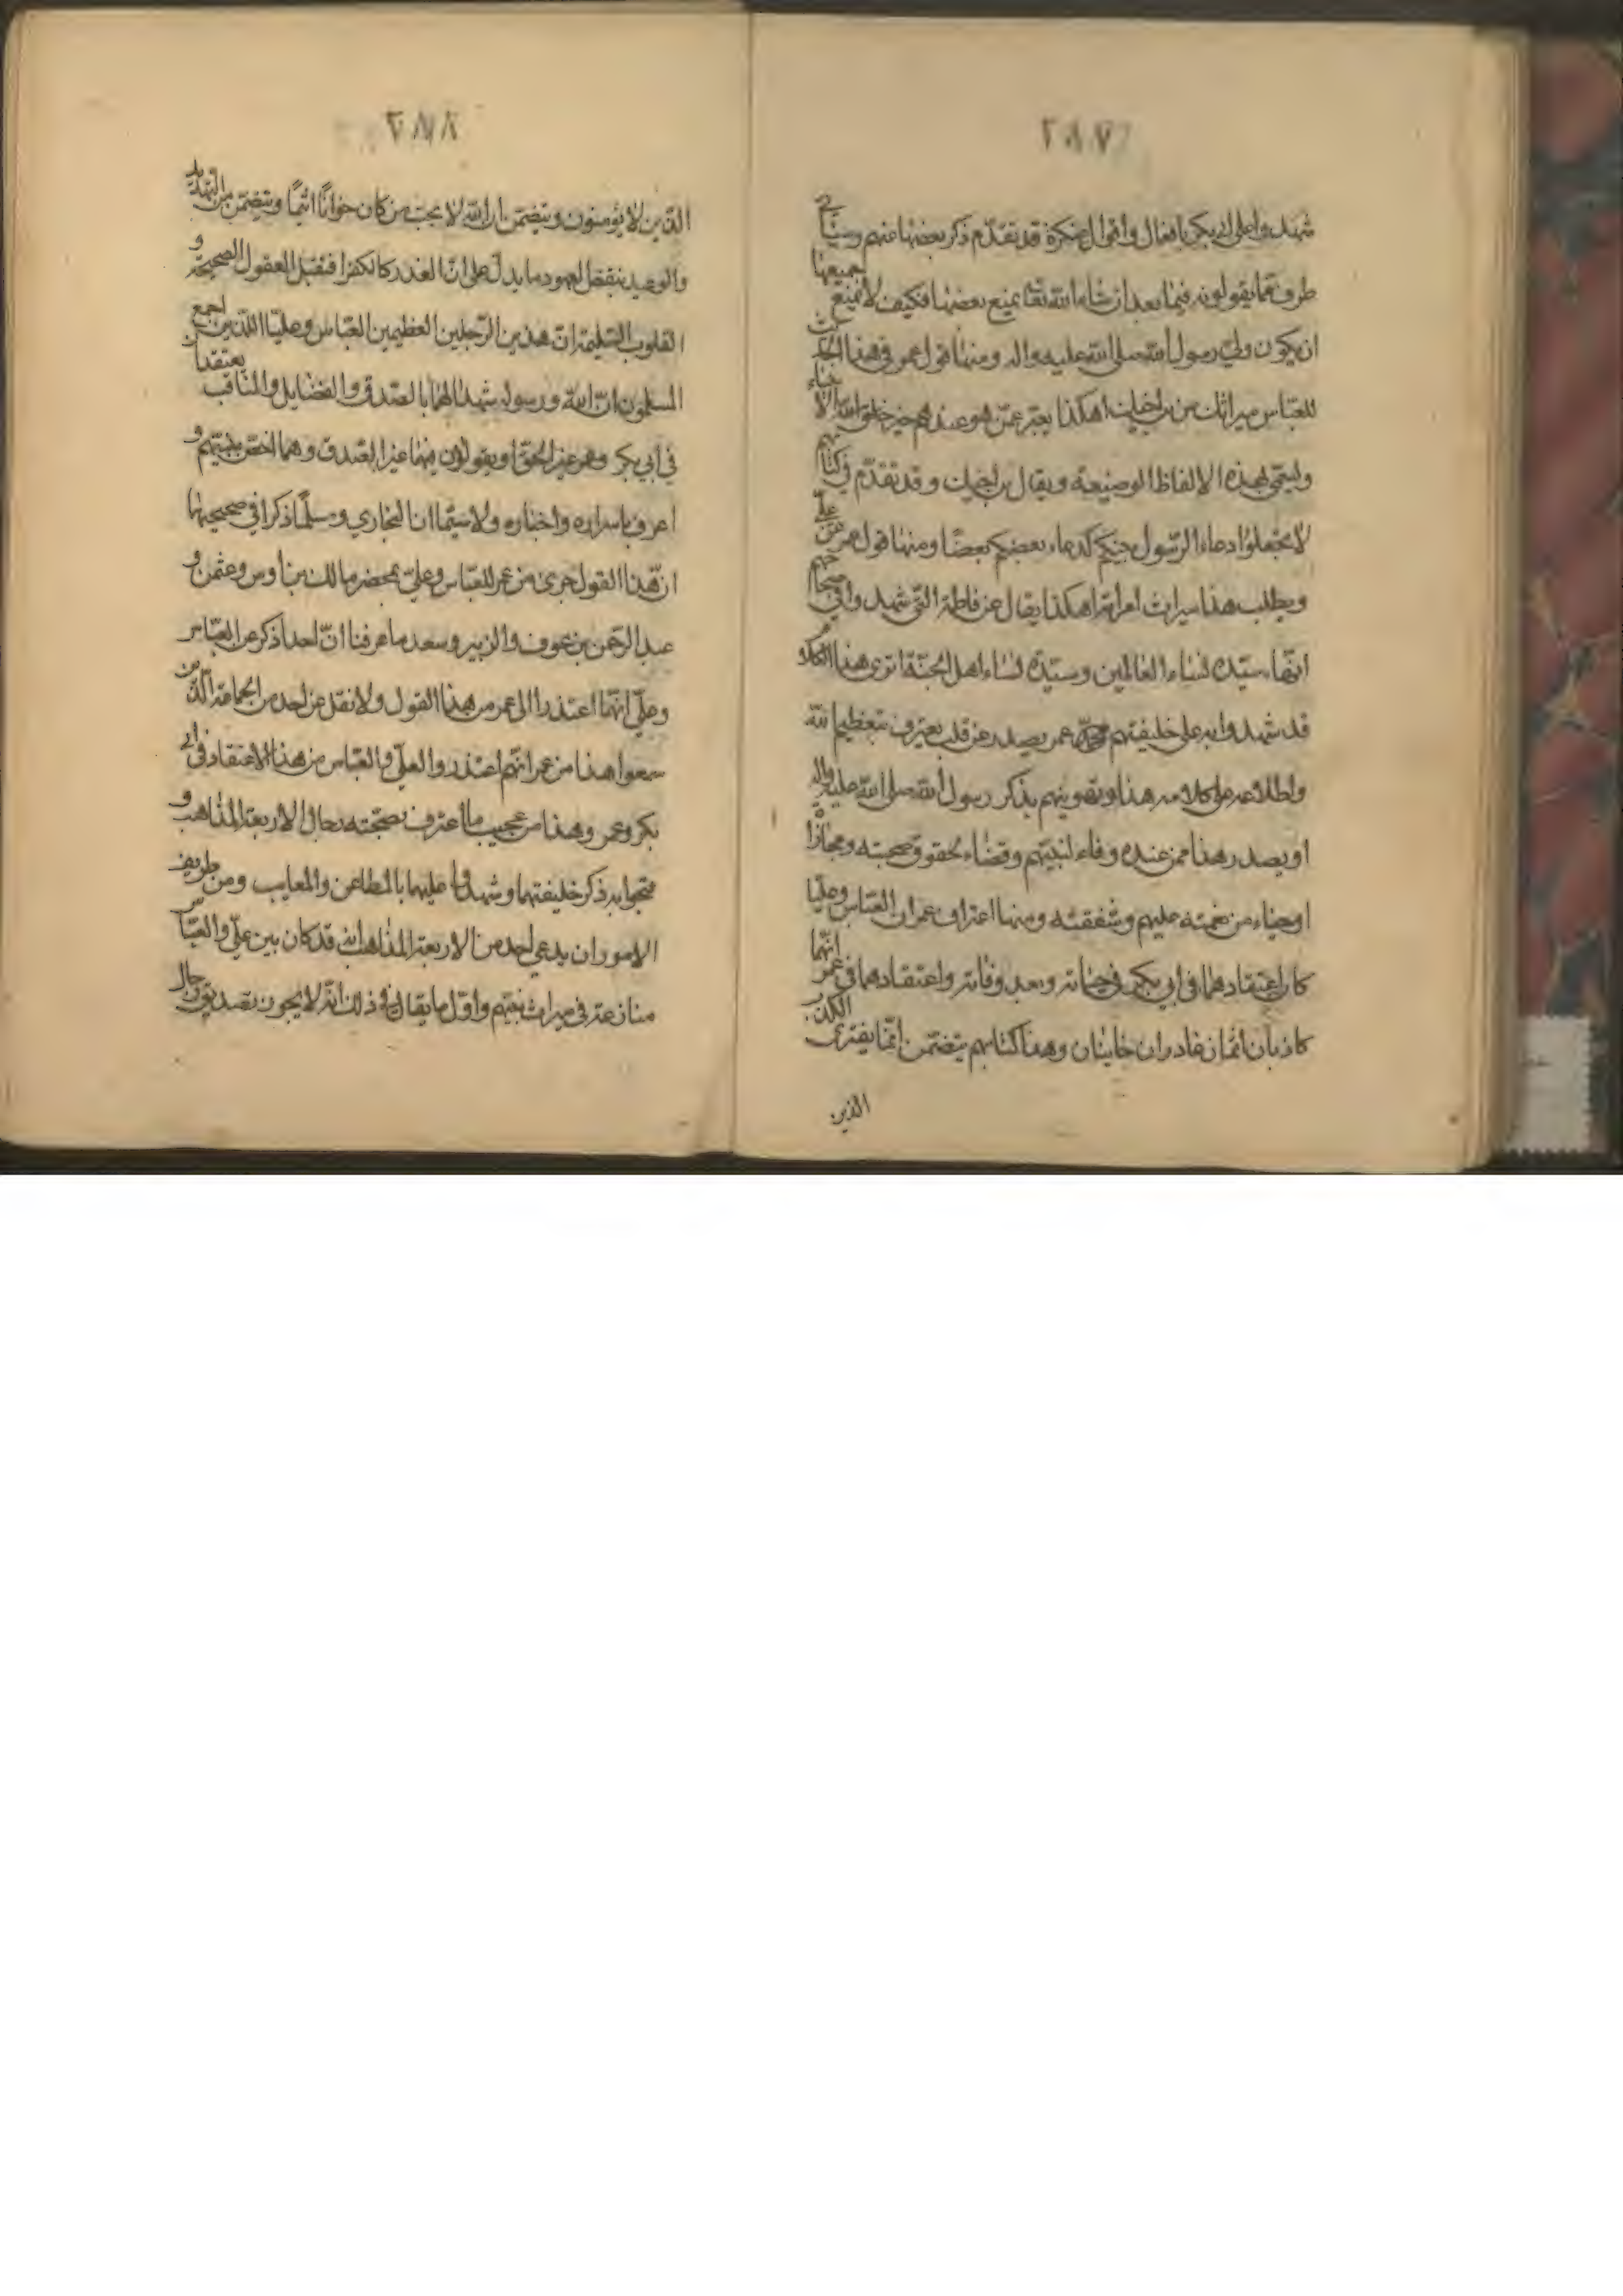 ٢٨٧
شهدوا على أبي بكر بافعال وأقوال منكرة قد تقدّم ذكر بعضها عنهم وسيأتي
طرف مما يقولونه فيما بعد ان شاء الله تعا يمنع بعضها فكيف لا يمنع جميعها
ان يكون ولي رسول الله صلى الله عليه واله ومنها قول عمر في هذا الحديث
للعباس ميراثك من ابن اخيك اهكذا يعبر عمّن هو عندهم خير خلق الله الانبياء
ويسمى بهذه الالفاظ الوضيعة ويقال ابن اخيك وقد تقدّم في كتابهم
لا تجعلوا دعاء الرّسول بينكم كدعاء بعضكم بعضًا ومنها قول عمر عن علي
ويطلب هذا ميراث امرأته اهكذا يقال عن فاطمة التي شهدوا في صحاحهم
انها سيّدة نساء العالمين وسيّدة نساء اهل الجنّة اترى هذا الكلام
قد شهدوا به على خليفتهم عمر يصدر عن قلب يعترف بتعظيم الله
واطلاعه على كلامه هذا وتهوينهم بذكر رسول الله صلى الله عليه واله
او يصدر هذا ممن عنده وفاء لنبيّهم وقضاء لحقوق صحبته ومجازاة
او حياء من نعمته عليهم وشفقته ومنها اعتراف عمر ان العبّاس وعليا
كان اعتقادهما في ابي بكر في حياته وبعد وفاته واعتقادهما في عمر انّهما
كاذبان اثمان غادران خاينان وهذا كتابهم يتضمن انما يفترى الكذب
الذين
٢٨٨
الذين لا يؤمنون ويتضمن ان الله لا يحب من كان خوانًا اثيمًا ويتضمن من التهديد
والوعيد بنقض العهود ما يدل على ان الغدر كالكفر افتقبل العقول الصحيحة و
القلوب السّليمة ان هذين الرّجلين العظيمين العبّاس وعليّا اللذين اجمع
المسلمون ان الله ورسوله شهدا لهما بالصّدق والفضايل والمناقب يعتقدان
في ابي بكر وعمر غير الحق او يقولون فيهما غير الصّدق وهما اخص بنبيّهم و
اعرف باسراره واخباره ولا سيّما ان البخاري ومسلمًا ذكرا في صحيحيهما
انّ هذا القول جرى من عمر للعبّاس وعليّ بمحضر مالك بن أوس وعثمن و
عبد الرّحمن بن عوف والزبير وسعد ما عرفنا انّ احدا ذكر عن العبّاس
وعليّ انّهما اعتذرا الى عمر من هذا القول ولا نقل عن احد من الجماعة الّذين
سمعوا هذا من عمر انّهم اعتذروا لعليّ والعبّاس من هذا الاعتقاد في ابي
بكر وعمر وهذا من عجيب ما اعترف بصحّته رجال الاربعة المذاهب و
قبحوا به ذكر خليفتهما وشهدوا عليهما بالمطاعن والمعايب ومن طريف
الامور ان يدعي احد من الاربعة المذاهب انه قد كان بين عليّ والعبّاس
منازعة في ميراث نبيّهم واوّل ما يقال في ذلك انّه لا يجوز تصديق رجال